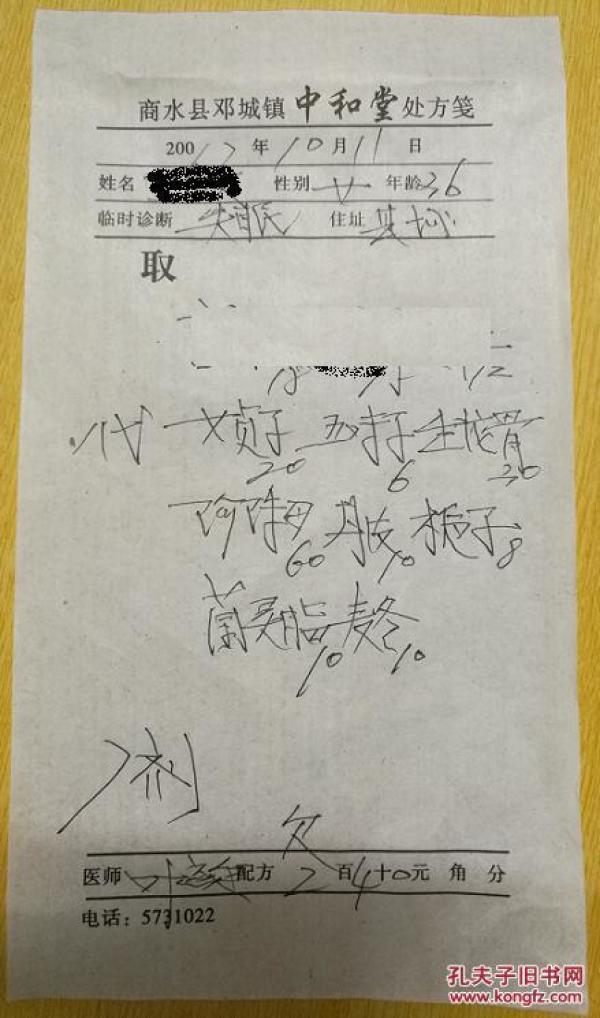 商水县邓城镇中和堂处方笺
200 年 10 月 11 日
姓名 性别 女 年龄 36
临时诊断 失眠 住址 县城
取
女贞子 五味子 生龙骨
20 6 30
珍珠母 丹皮 栀子
60 10 8
菌灵脂 麦冬
10 10
剂
欠
医师 叶 配方 2 百 4 十 0 元 角 分
电话：5731022
孔夫子旧书网
www.kongfz.com